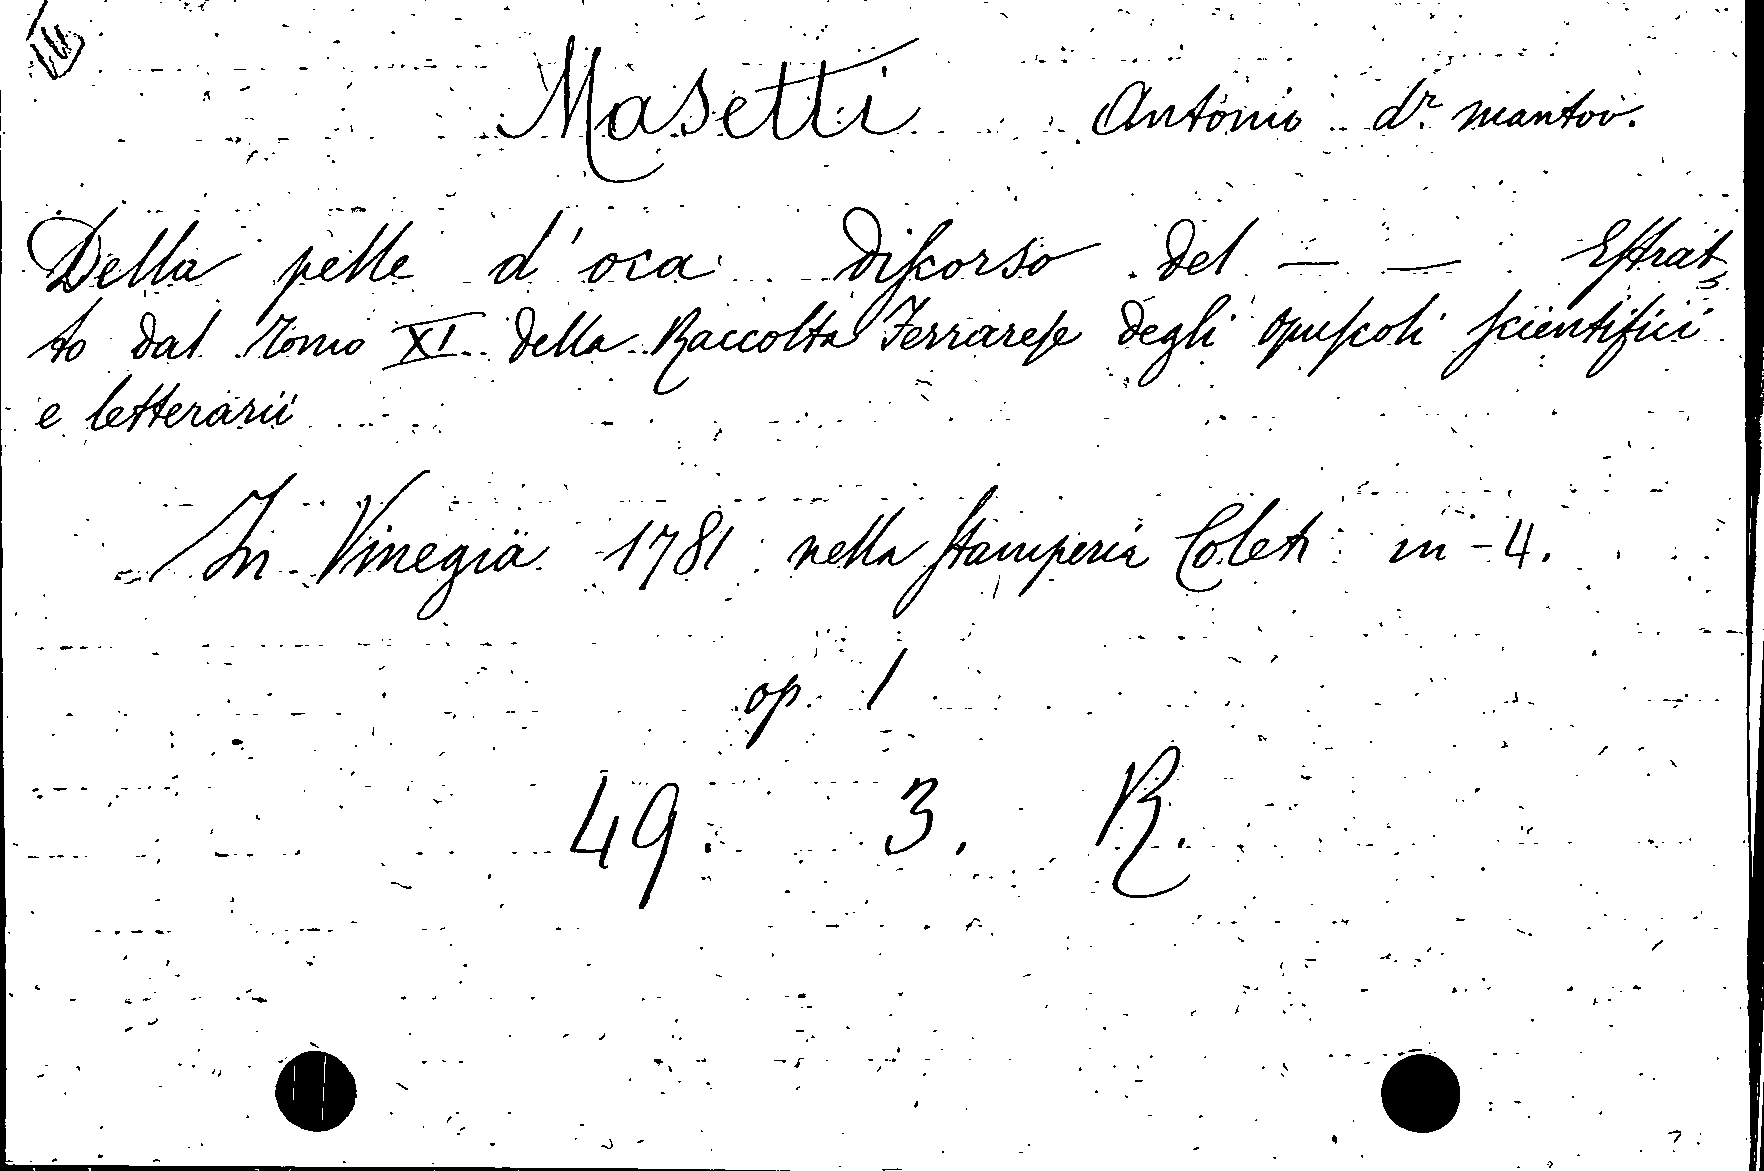 Masetti Antonio dr. mantov.
Della pelle d'oca Diſcorso del — — Eſtrat-
to dal Tomo XI della Raccolta Ferrareſe degli opuſcoli ſcientifici
e letterarii
In Vinegia 1781 nella ſtamperia Coleti in-4.
op. 1
49. 3. R.